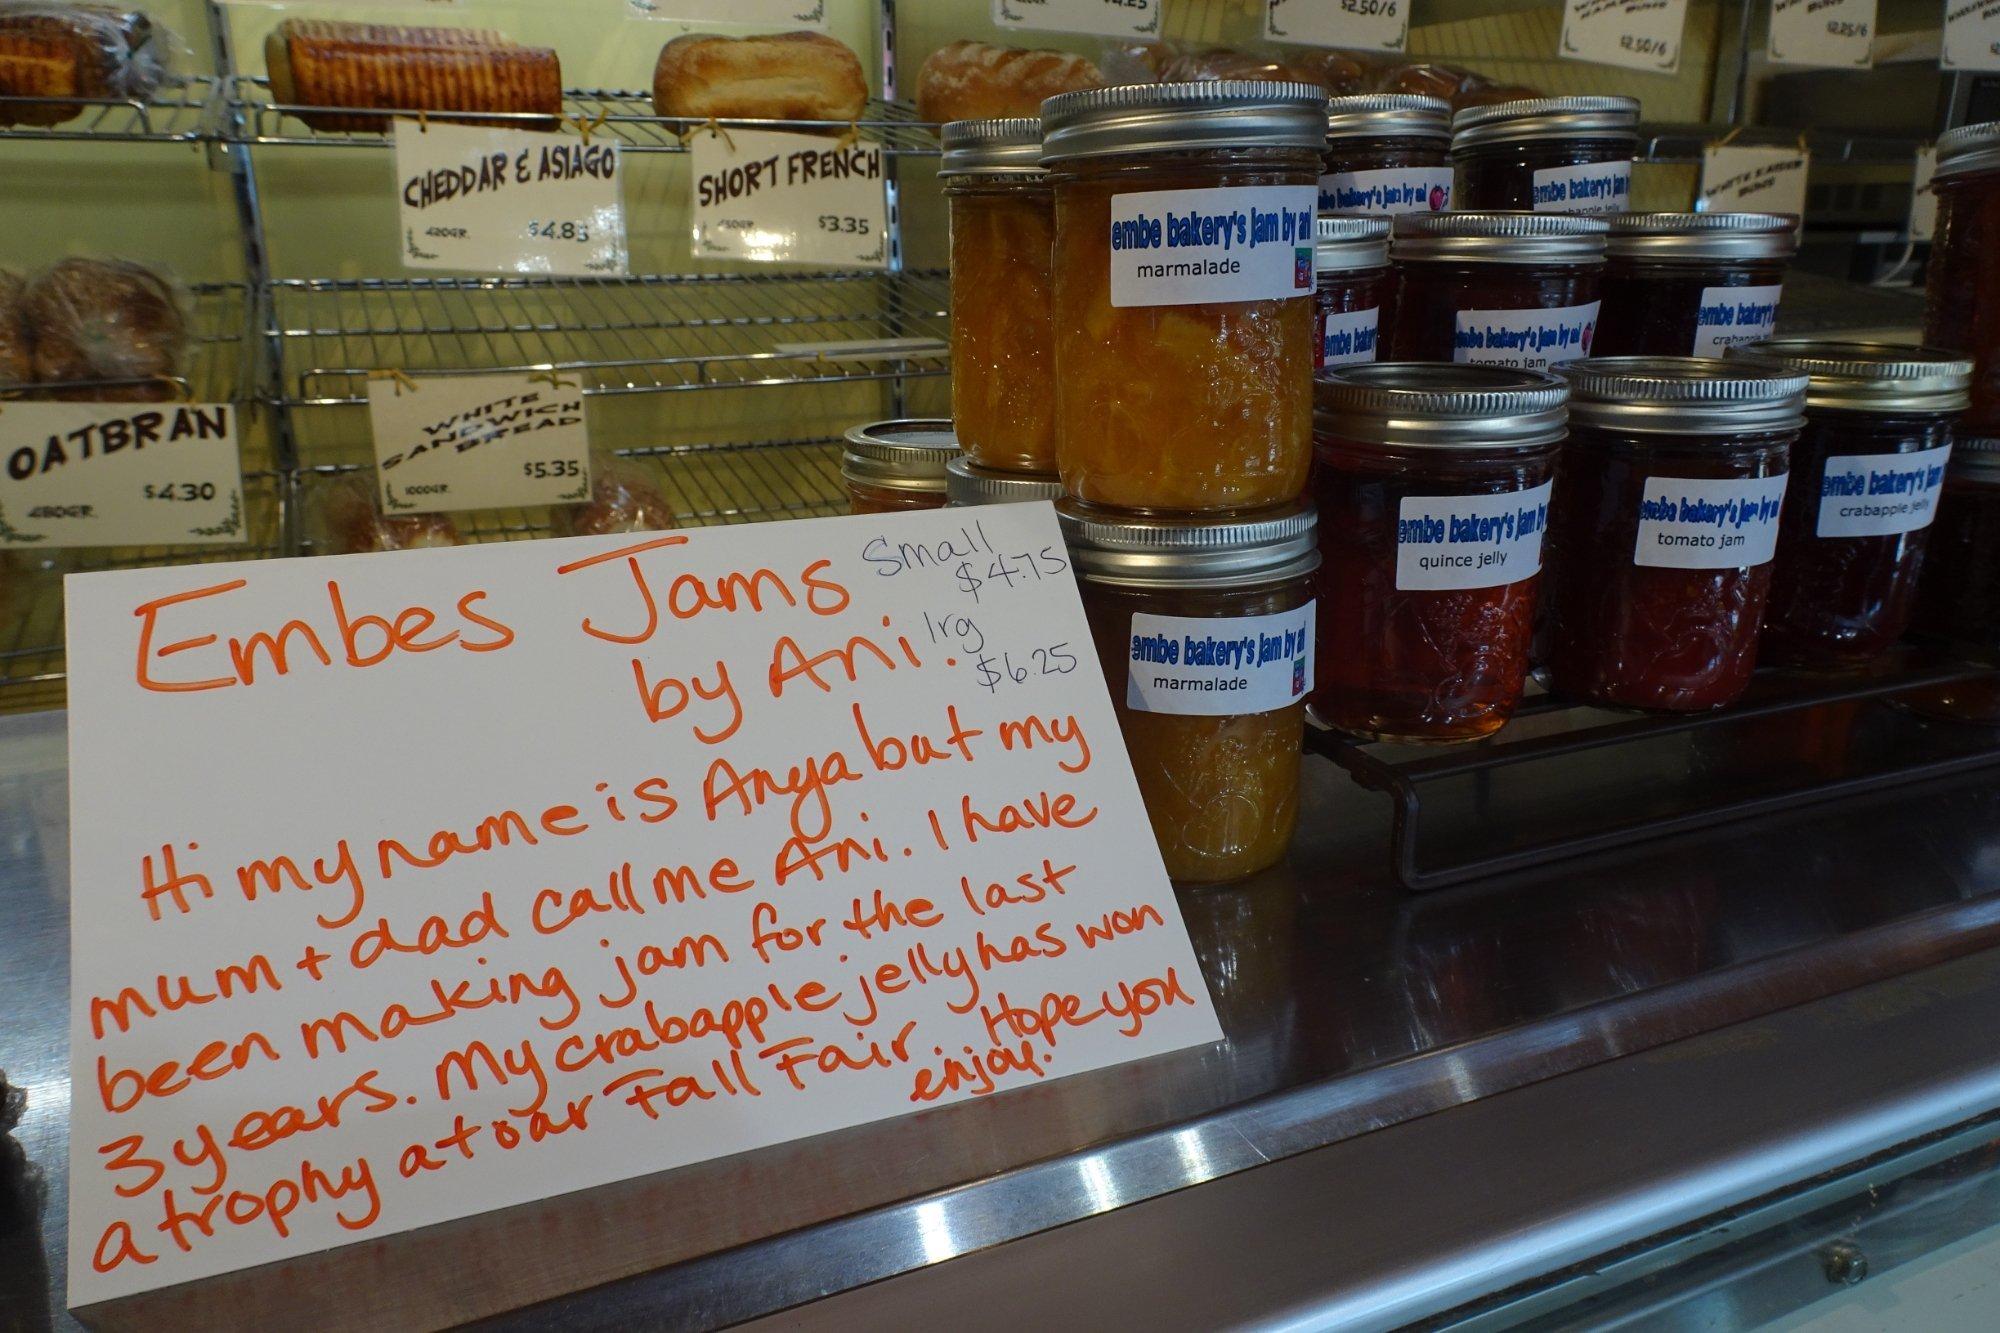 $4.25
$2.50/6
$2.50/6
$2.25/6
CHEDDAR & ASIAGO
420GR. $4.85
SHORT FRENCH
450GR. $3.35
OATBRAN
480GR. $4.30
WHITE
SANDWICH
BREAD
1000GR. $5.35
embe bakery's jam by ani
marmalade
embe bakery's jam by ani
marmalade
embe bakery's jam by ani
embe bakery's jam
crabapple jelly
embe bakery
embe bakery's jam by ani
tomato jam
embe bakery's
crabapple
embe bakery's jam by
quince jelly
embe bakery's jam by ani
tomato jam
embe bakery's jam by
crabapple jelly
Embes Jams
by Ani.
Small
$4.75
lrg
$6.25
Hi my name is Anya but my
mum + dad call me Ani. I have
been making jam for the last
3 years. My crabapple jelly has won
a trophy at our Fall Fair. Hope you
enjoy.